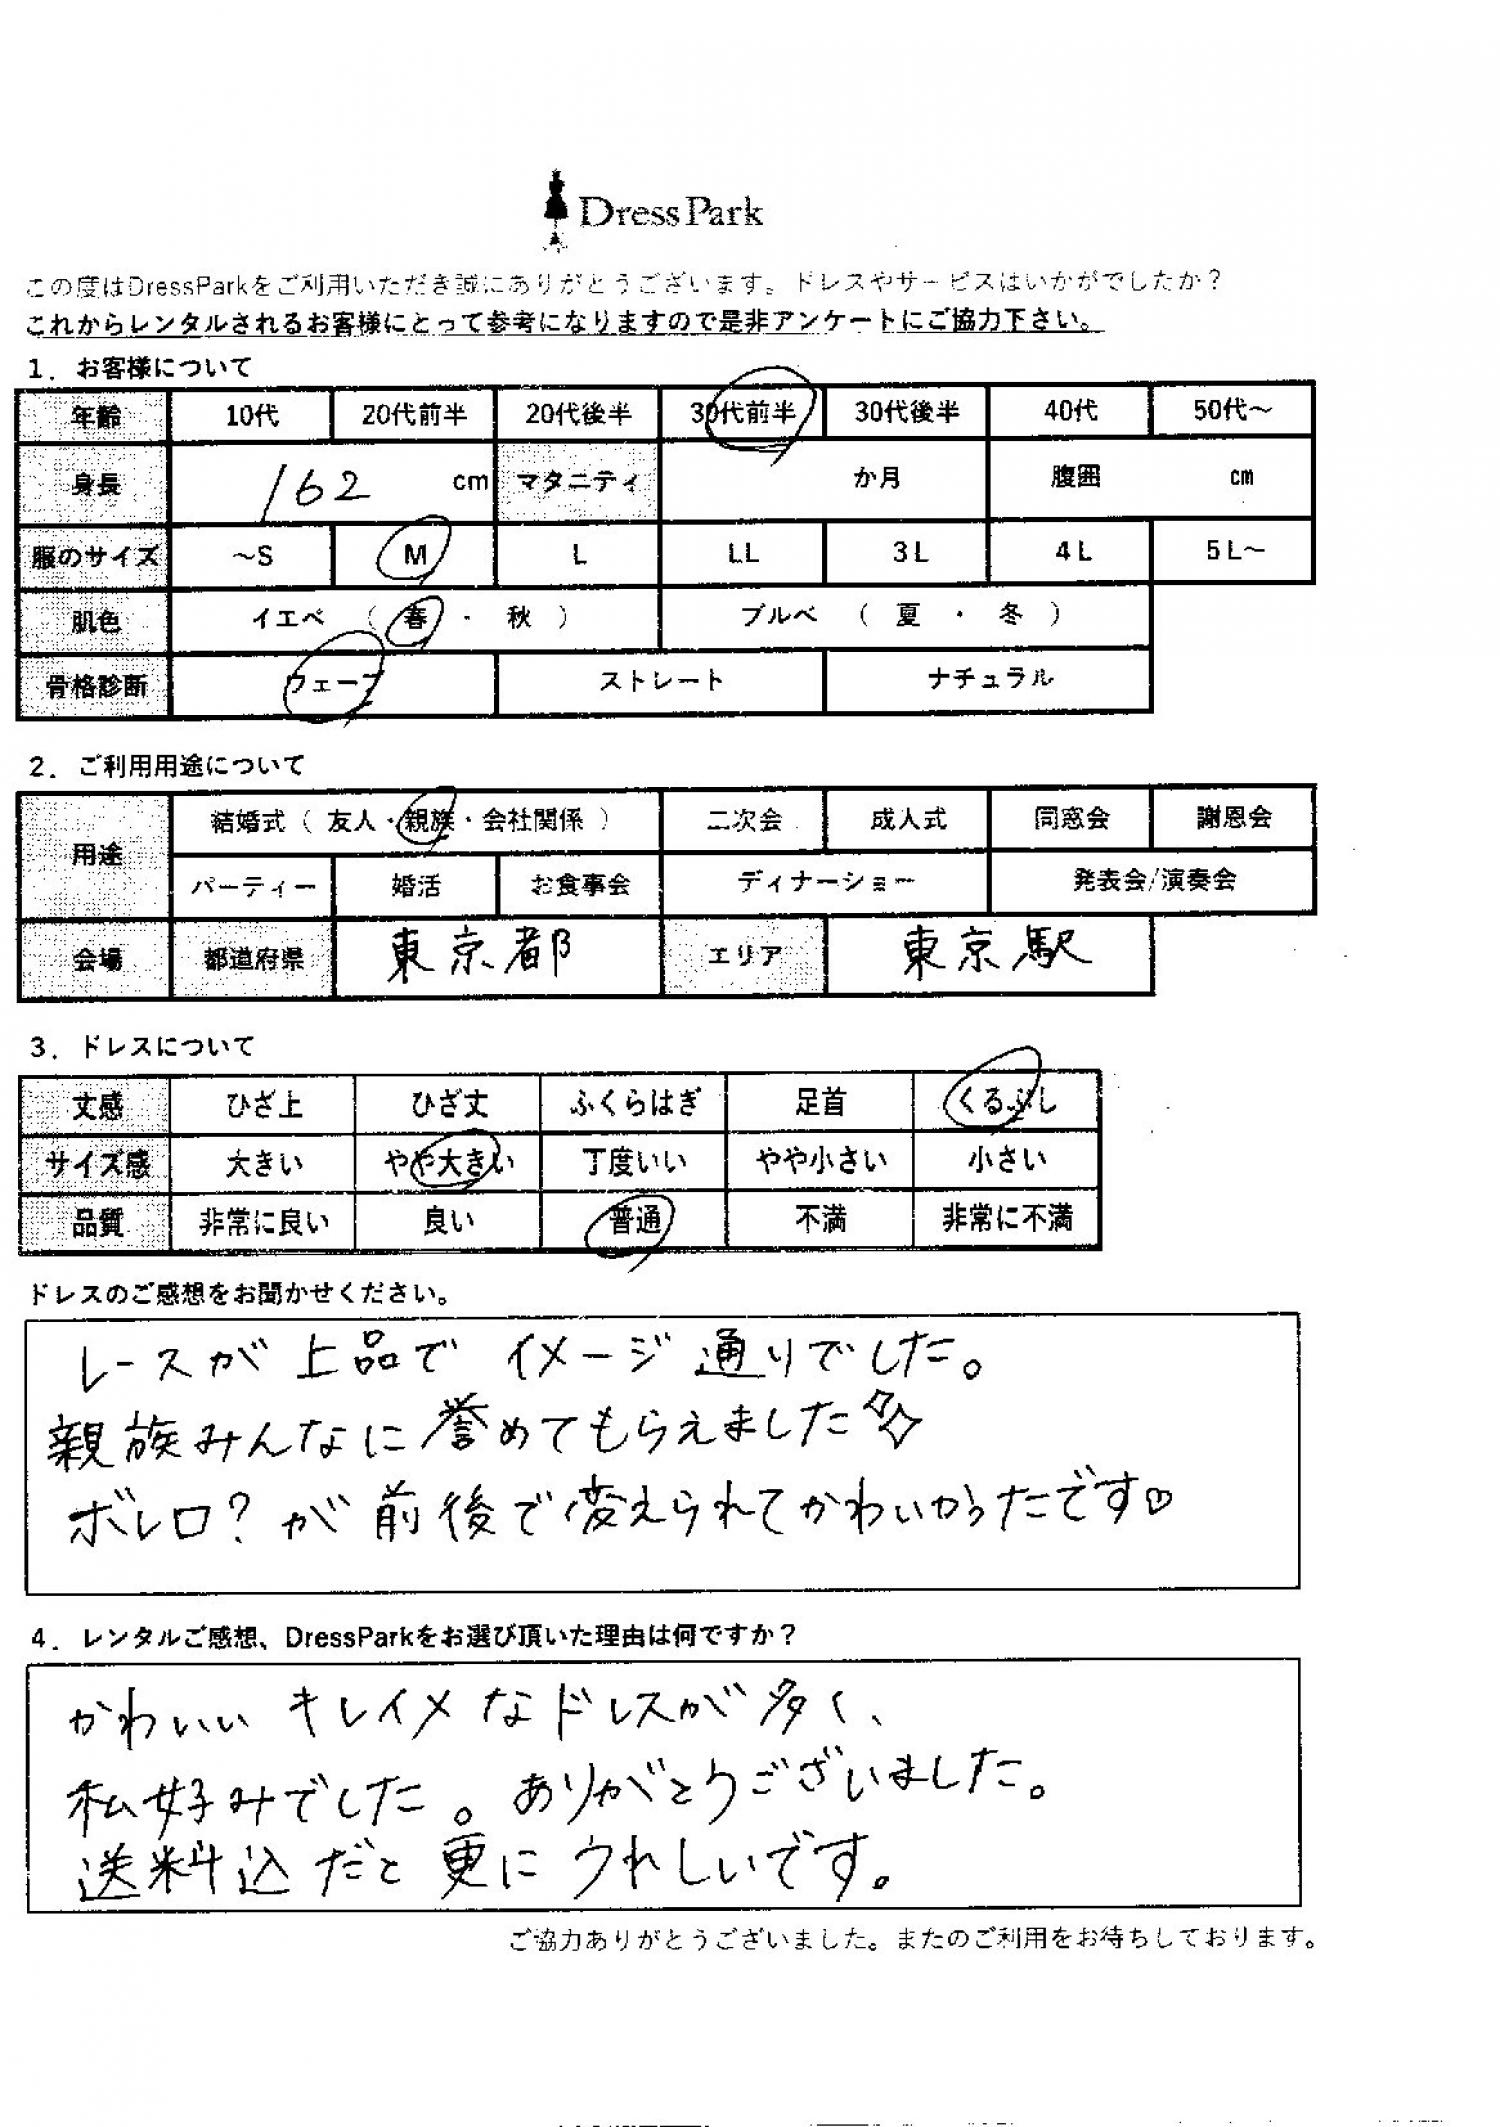 DressPark
この度はDressParkをご利用いただき誠にありがとうございます。ドレスやサービスはいかがでしたか？
これからレンタルされるお客様にとって参考になりますので是非アンケートにご協力下さい。
1．お客様について
年齢 10代 20代前半 20代後半 30代前半 30代後半 40代 50代～
身長 162 cm マタニティ か月 腹囲 cm
服のサイズ ～S M L LL 3L 4L 5L～
肌色 イエベ （ 春 ・ 秋 ） ブルベ （ 夏 ・ 冬 ）
骨格診断 ウェーブ ストレート ナチュラル
2．ご利用用途について
用途 結婚式（ 友人・親族・会社関係 ） 二次会 成人式 同窓会 謝恩会
パーティー 婚活 お食事会 ディナーショー 発表会/演奏会
会場 都道府県 東京都 エリア 東京駅
3．ドレスについて
丈感 ひざ上 ひざ丈 ふくらはぎ 足首 くるぶし
サイズ感 大きい やや大きい 丁度いい やや小さい 小さい
品質 非常に良い 良い 普通 不満 非常に不満
ドレスのご感想をお聞かせください。
レースが上品で イメージ通りでした。
親族みんなに誉めてもらえました✨
ボレロ？が前後で変えられてかわいかったです♡
4．レンタルご感想、DressParkをお選び頂いた理由は何ですか？
かわいい キレイメなドレスが多く、
私好みでした。ありがとうございました。
送料込だと更にうれしいです。
ご協力ありがとうございました。またのご利用をお待ちしております。